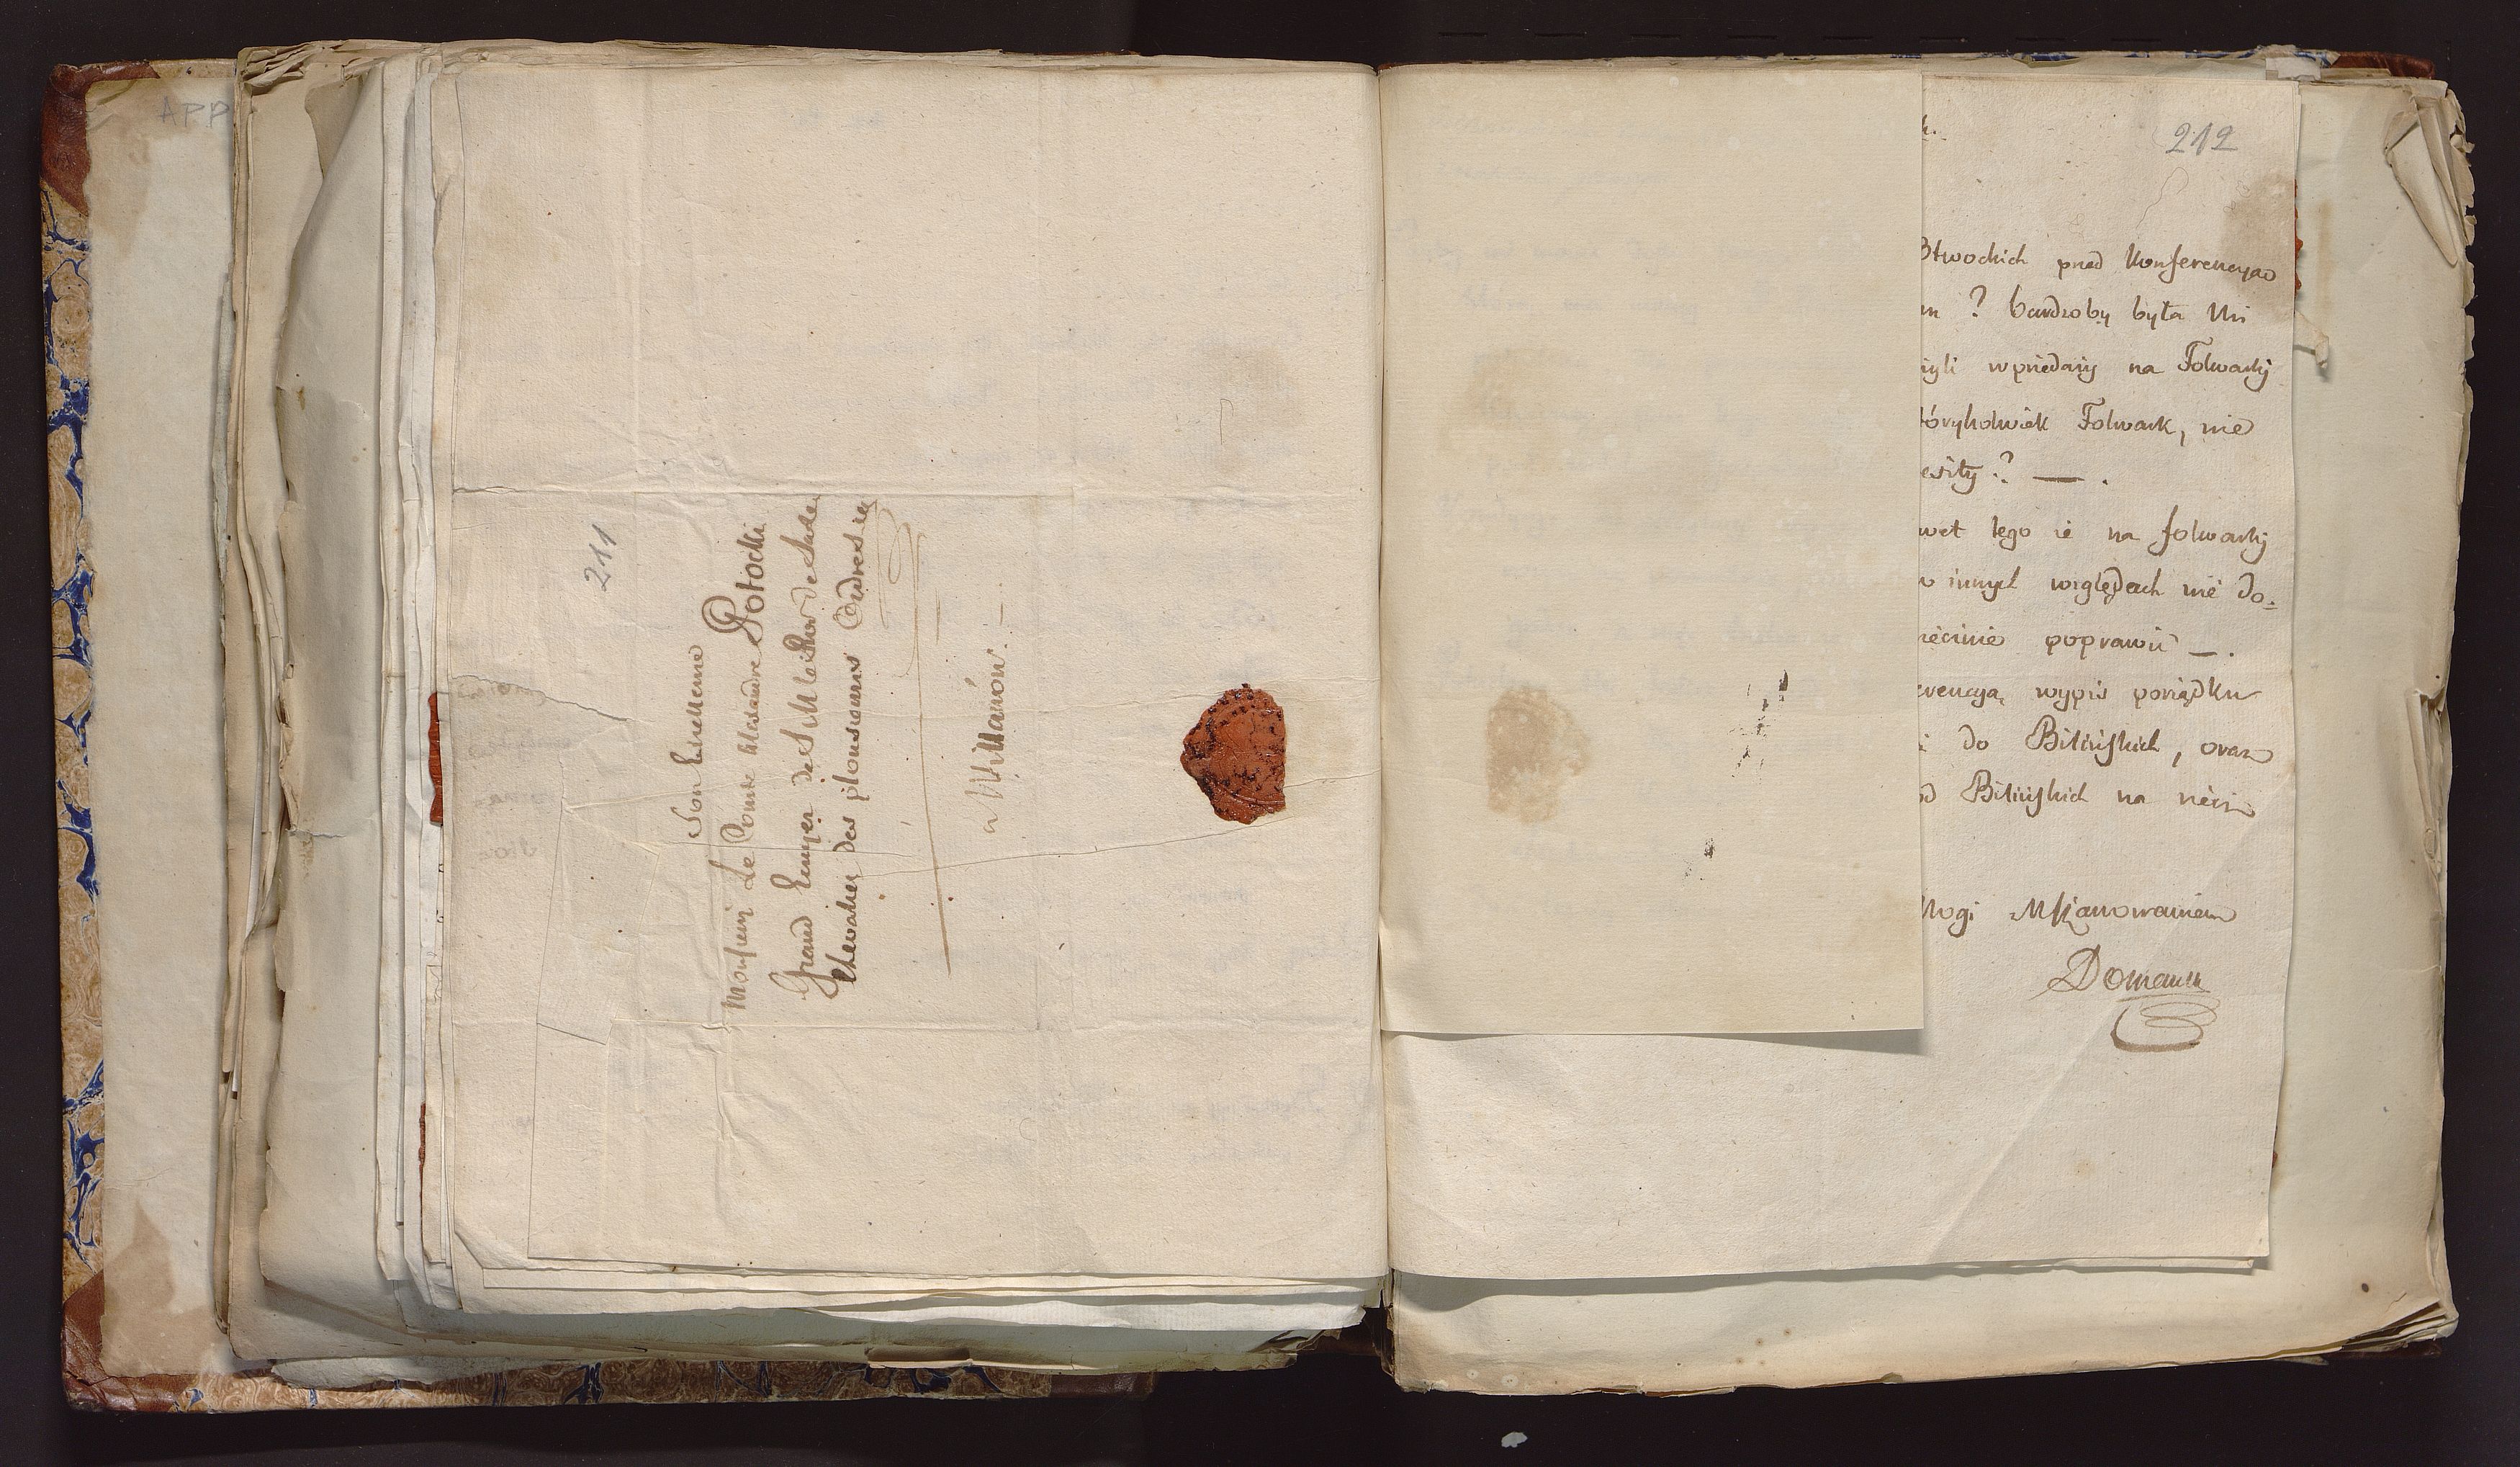 APP
211
Son Excellence
Monsieur Le Comte Alexandre Potocki
Grand Ecuyer de S M le Roi de Saxe
Chevalier des plousieures Ordres
a Willanów. —
212
Otwockich pred Konferencyao
? bardzoby była Mi
wprzedaży na Folwarki
tórykolwiek Folwark, nie
? — .
wet tego że na folwarki
w innych względach nie do=
poprawić — .
erencyą wypis porządku
do Bilińskich, oraz
od Bilińskich na rzecz
Uszanowaniem
Domański